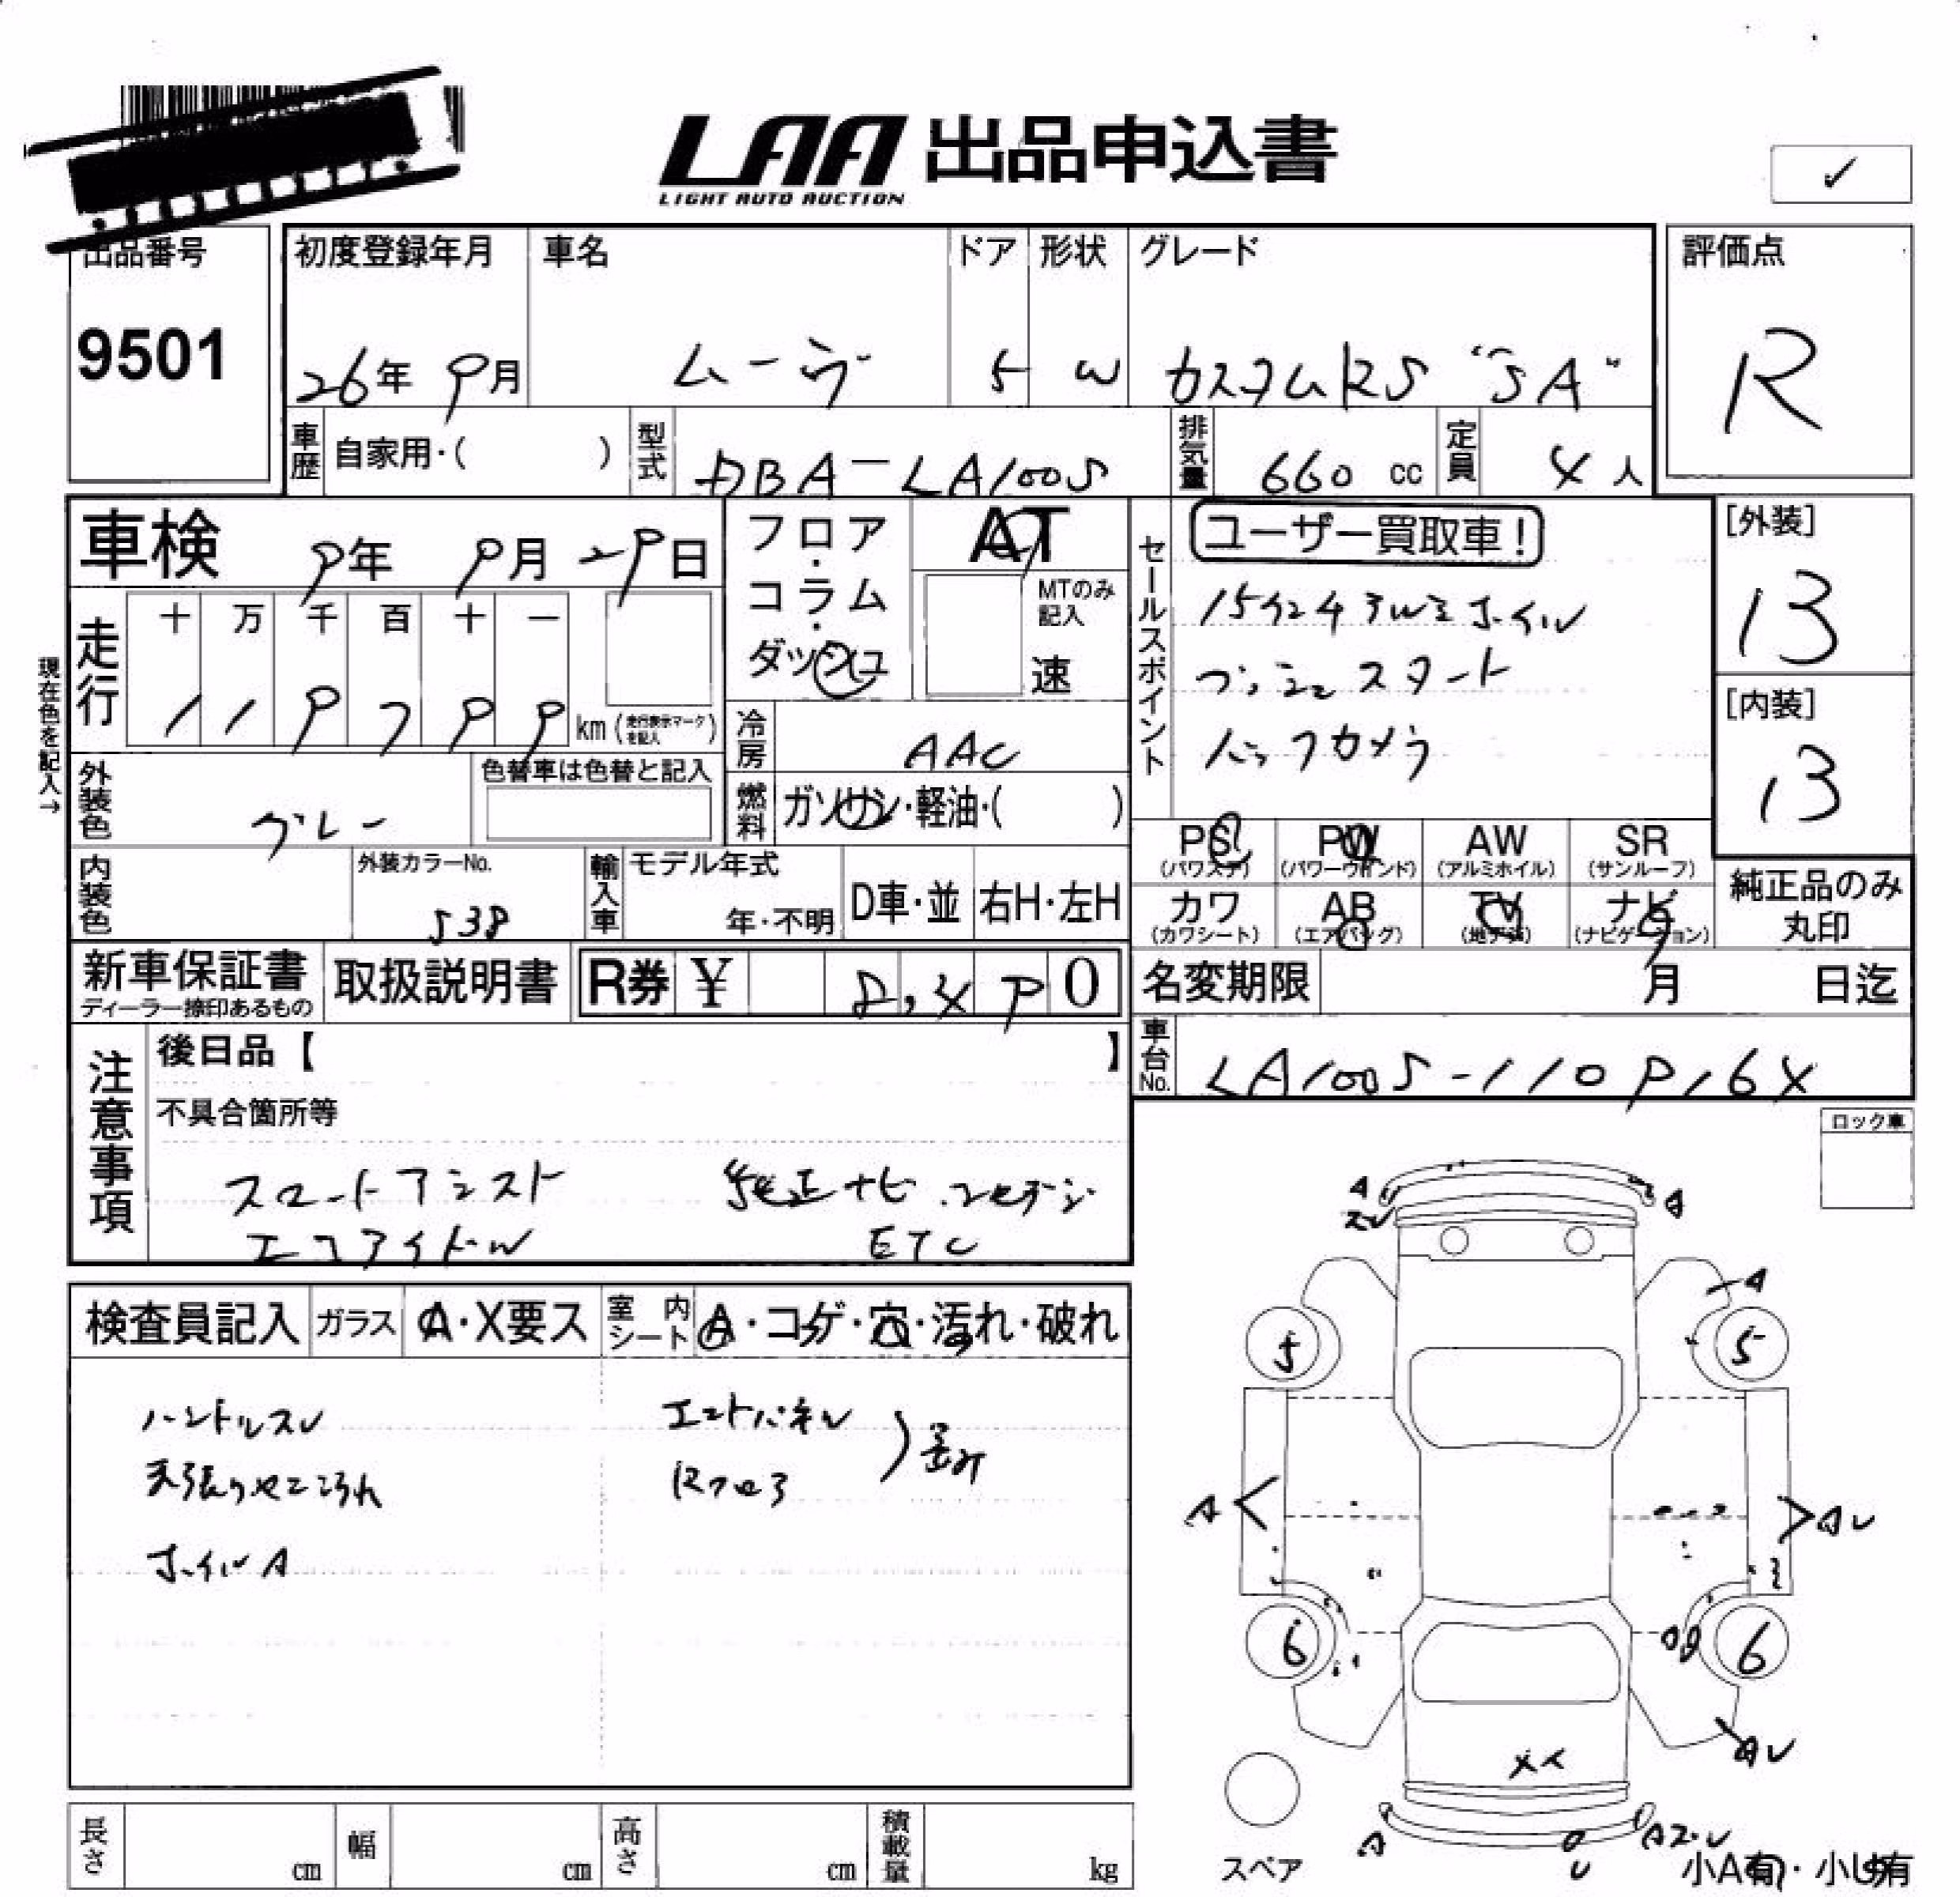 LAA 出品申込書
LIGHT AUTO AUCTION
✓
出品番号 初度登録年月 車名 ドア 形状 グレード 評価点
9501 26年 9月 ムーヴ 5 W カスタムRS "SA" R
車歴 自家用・( ) 型式 DBA-LA100S 排気量 660 cc 定員 4 人
車検 9年 9月 29日 フロア・コラム・ダッシュ AT MTのみ記入 速
セールスポイント ユーザー買取車!
[外装] B
走行 十 万 千 百 十 一
1 1 9 7 9 9 km (走行表示マークを記入)
ホイル
プッシュスタート
バックカメラ
[内装] B
現在色を記入→
冷房 AAC
外装色 グレー 色替車は色替と記入
燃料 ガソリン・軽油・( )
PS (パワステ) PW (パワーウインド) AW (アルミホイル) SR (サンルーフ)
内装色 外装カラーNo. S38 輸入車 モデル年式 年・不明 D車・並 右H・左H
カワ (カワシート) AB (エアバッグ) TV (地デジ) ナビ (ナビゲーション) 純正品のみ丸印
新車保証書 ディーラー捺印あるもの 取扱説明書 R券 ¥ 8,490
名変期限 月 日迄
車台No. LA100S-1109164
注意事項 後日品【 】
不具合箇所等
スマートアシスト 純正ナビ.フルセグ
エコアイドル ETC
ロック車
検査員記入 ガラス A・X要ス 室内シート A・コゲ・穴・汚れ・破れ
ハンドルスレ エンドパネル
天張りやこられ Rフロア 歪み
ホイルA
A A
A
5 5
A AU
6 6
AU
A U
スペア 小A有・小U有
長さ cm 幅 cm 高さ cm 積載量 kg